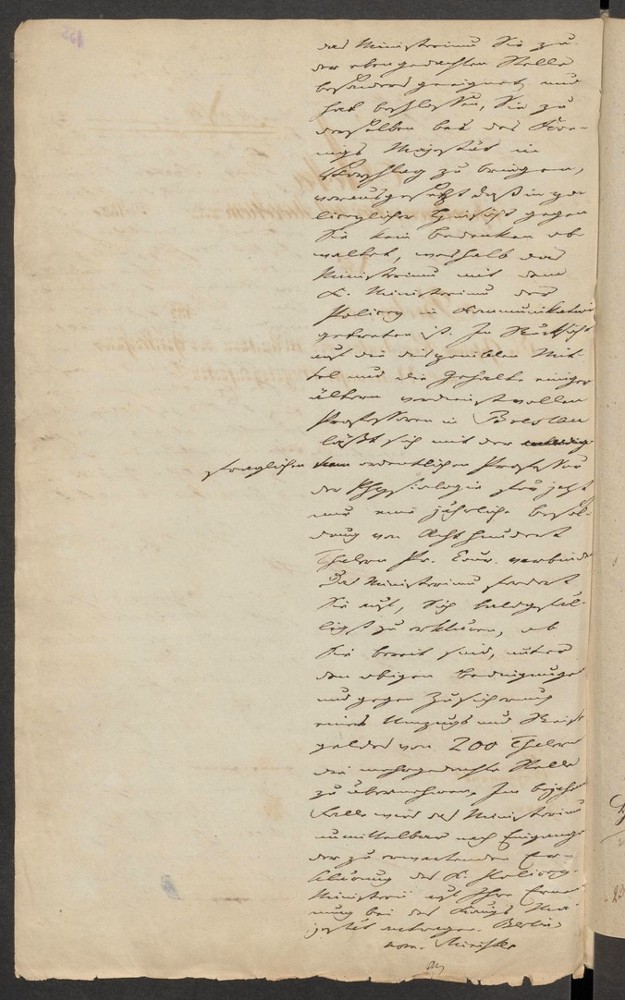 das Ministerium Sie zu
der oben gedachten Stelle
besonders geeignet und
hat beschlossen, Sie zu
derselben bei des Kö-
nigs Majestät in
Vorschlag zu bringen,
vorausgesetzt daß in po-
lizeylicher Hinsicht gegen
Sie kein Bedenken ob-
waltet, weshalb das
Ministerium mit dem
K. Ministerium der
Polizey in Kommunikation
getreten ist. In Rücksicht
auf die disponiblen Mit-
tel und die Gehalte einiger
ältern verdienstvollen
Professoren in Breslau
läßt sich mit der
fraglichen ordentlichen Professur
der Physiologie für jetzt
nur eine jährliche Besol-
dung von Achthundert
Thalern Pr. Cour. verbinden
Das Ministerium fordert
Sie auf, Sich baldgefäl-
ligst zu erklären, ob
Sie bereit sind, unter
den obigen Bedingungen
und gegen Zusicherung
eines Umzugs und Reise
geldes von 200 Thalern
die mehrgedachte Stelle
zu übernehmen. Im bejah
Falle wird das Ministerium
unmittelbar nach Eingange
der zu erwartenden Er-
klärung des K. Polizey-
Ministerii auf Ihre Ernen-
nung bei des Königs Ma-
jestät antragen. Berlin